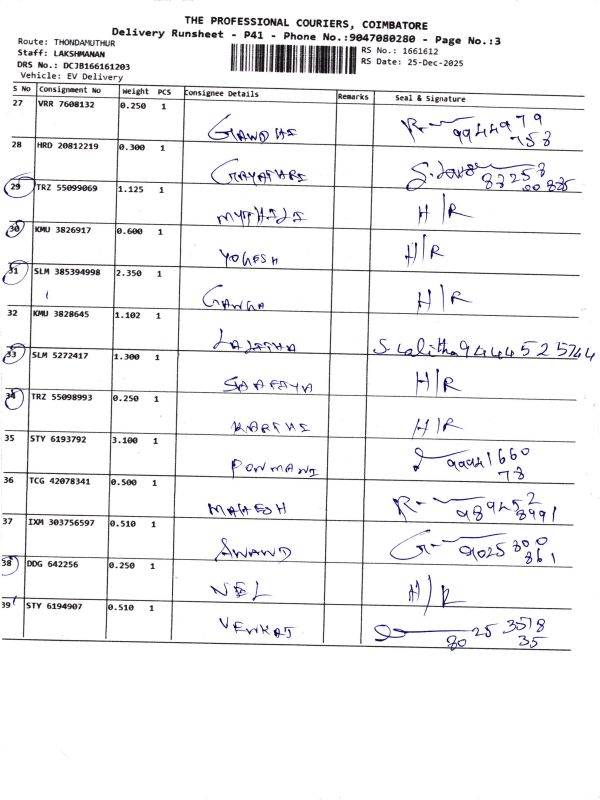 THE PROFESSIONAL COURIERS, COIMBATORE
Delivery Runsheet - P41 - Phone No.:9047080280 - Page No.:3
Route: THONDAMUTHUR
Staff: LAKSHMANAN
DRS No.: DCJB166161203
Vehicle: EV Delivery
RS No.: 1661612
RS Date: 25-Dec-2025
S No Consignment No Weight PCS Consignee Details Remarks Seal & Signature
27 VRR 7608132 0.250 1
GANDHI R- 9944979
758
28 HRD 20812219 0.300 1
GAYATHRI
29 TRZ 55099069 1.125 1
MYTHILI H/R
30 KMU 3826917 0.600 1
YOGESH H/R
31 SLM 385394998 2.350 1
GANGA H/R
32 KMU 3828645 1.102 1
LALITHA S. Lalitha 9444525744
33 SLM 5272417 1.300 1
H/R
34 TRZ 55098993 0.250 1
KARTHI H/R
35 STY 6193792 3.100 1
PONMANI 99941660
78
36 TCG 42078341 0.500 1
MAHESH R- 989452
8991
37 IXM 303756597 0.510 1
ANAND G- 9025800
861
38 DDG 642256 0.250 1
NEL H/R
39 STY 6194907 0.510 1
VENKAT 8025 3518
35